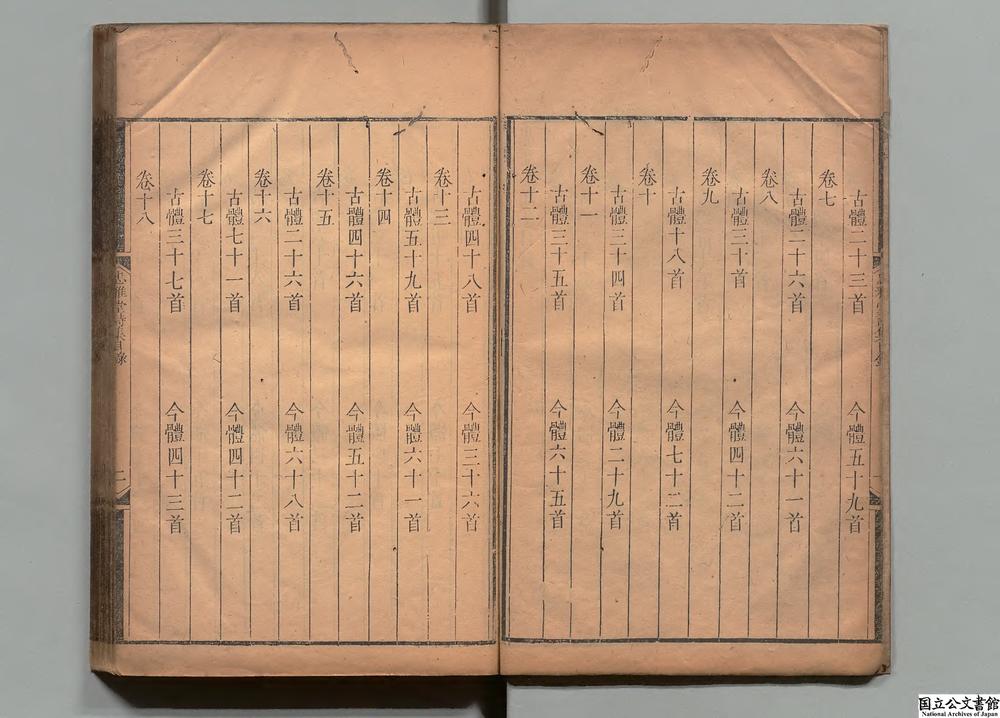 古體二十三首　今體五十九首
卷七
古體二十六首　今體六十一首
卷八
古體三十首　今體四十二首
卷九
古體十八首　今體七十二首
卷十
古體三十四首　今體二十九首
卷十一
古體三十五首　今體六十五首
卷十二
古體四十八首　今體三十六首
卷十三
古體五十九首　今體六十一首
卷十四
古體四十六首　今體五十二首
卷十五
古體二十六首　今體六十八首
卷十六
古體七十一首　今體四十二首
卷十七
古體三十七首　今體四十三首
卷十八
忠雅堂詩集目錄
国立公文書館
National Archives of Japan